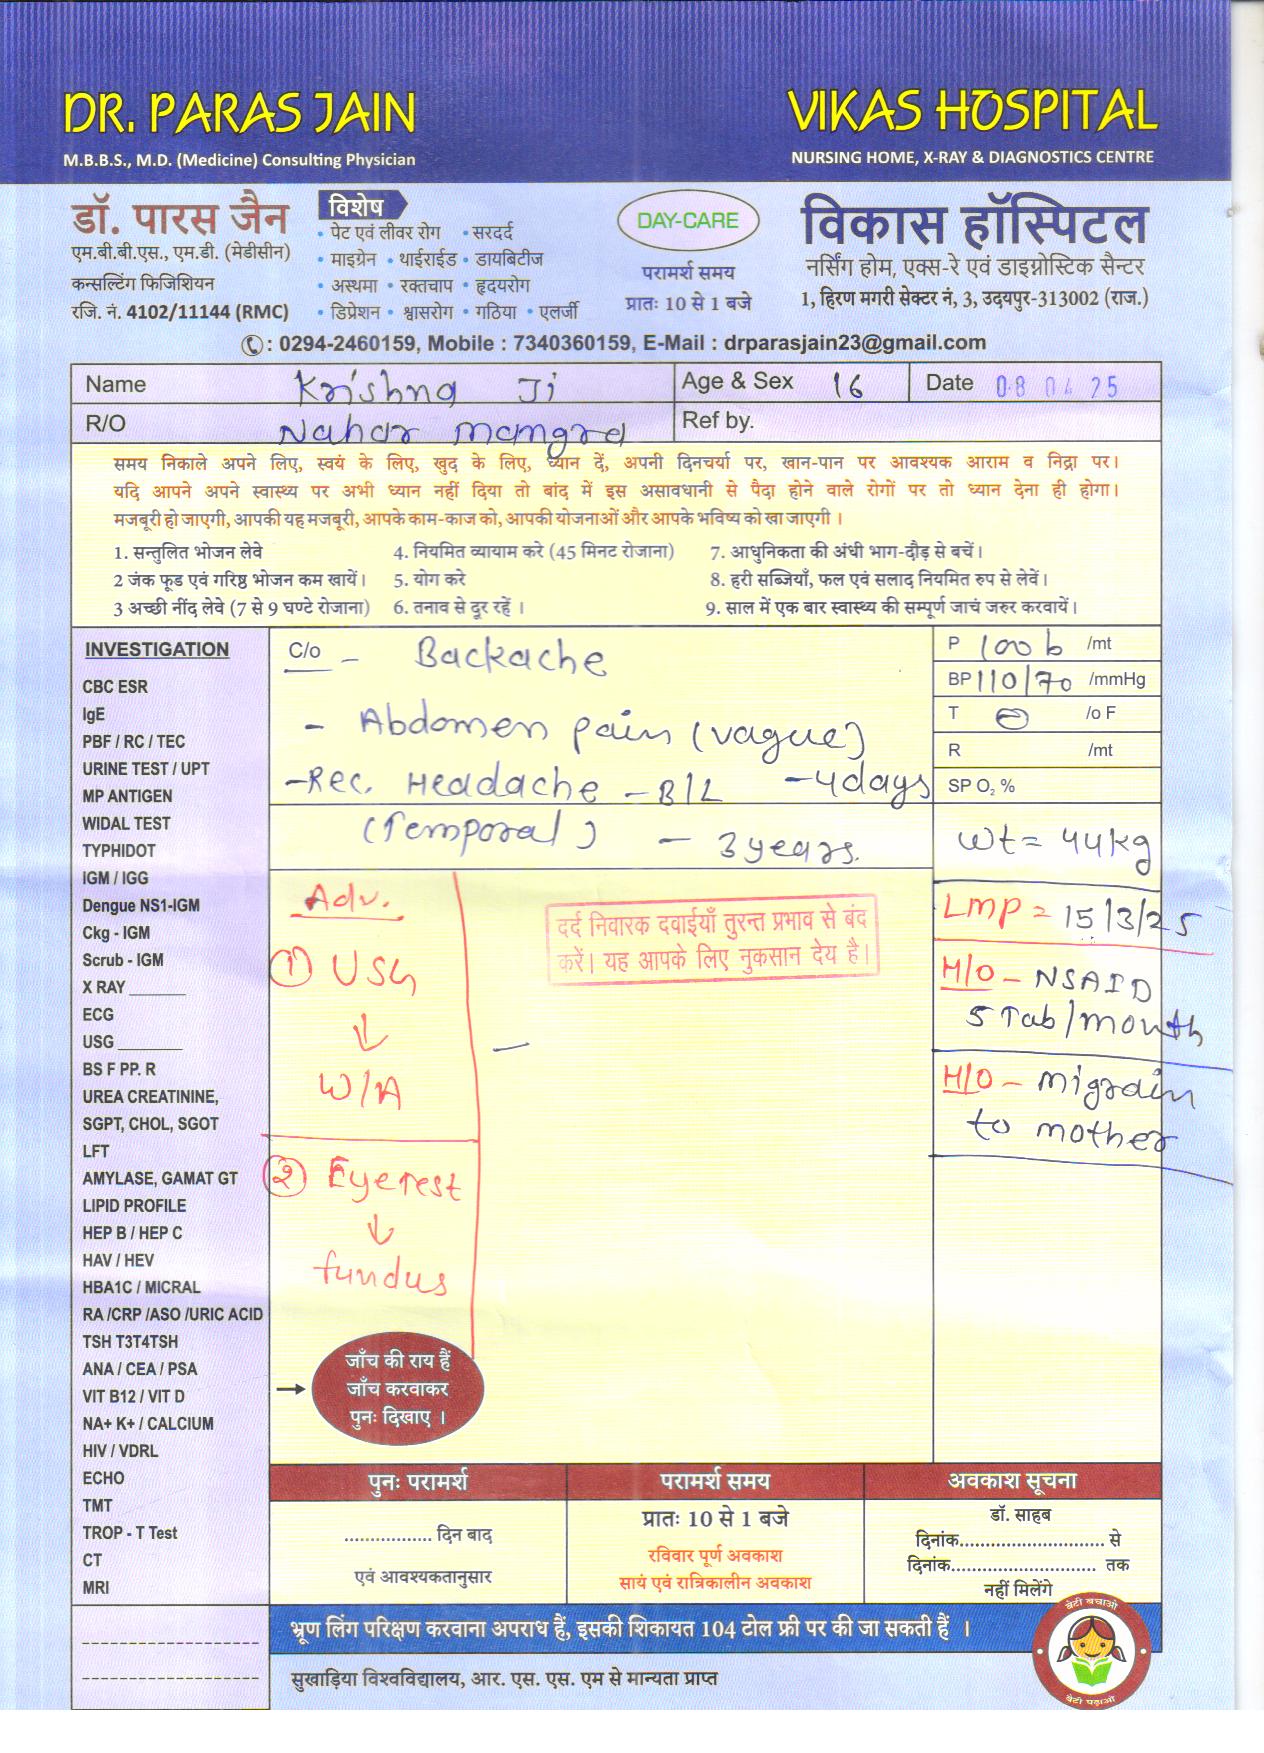 DR. PARAS JAIN
M.B.B.S., M.D. (Medicine) Consulting Physician
VIKAS HOSPITAL
NURSING HOME, X-RAY & DIAGNOSTICS CENTRE
डॉ. पारस जैन
एम.बी.बी.एस., एम.डी. (मेडीसीन)
कन्सल्टिंग फिजिशियन
रजि. नं. 4102/11144 (RMC)
विशेष
• पेट एवं लीवर रोग • सरदर्द
• माइग्रेन • थाईराईड • डायबिटीज
• अस्थमा • रक्तचाप • हृदयरोग
• डिप्रेशन • श्वासरोग • गठिया • एलर्जी
DAY-CARE
परामर्श समय
प्रातः 10 से 1 बजे
विकास हॉस्पिटल
नर्सिंग होम, एक्स-रे एवं डाइग्नोस्टिक सैन्टर
1, हिरण मगरी सेक्टर नं, 3, उदयपुर-313002 (राज.)
✆: 0294-2460159, Mobile : 7340360159, E-Mail : drparasjain23@gmail.com
Name Krishna Ji Age & Sex 16 Date 08 04 25
R/O Nahar mamgra Ref by.
समय निकाले अपने लिए, स्वयं के लिए, खुद के लिए, ध्यान दें, अपनी दिनचर्या पर, खान-पान पर आवश्यक आराम व निद्रा पर।
यदि आपने अपने स्वास्थ्य पर अभी ध्यान नहीं दिया तो बांद में इस असावधानी से पैदा होने वाले रोगों पर तो ध्यान देना ही होगा।
मजबूरी हो जाएगी, आपकी यह मजबूरी, आपके काम-काज को, आपकी योजनाओं और आपके भविष्य को खा जाएगी ।
1. सन्तुलित भोजन लेवे 4. नियमित व्यायाम करे (45 मिनट रोजाना) 7. आधुनिकता की अंधी भाग-दौड़ से बचें।
2 जंक फूड एवं गरिष्ठ भोजन कम खायें। 5. योग करे 8. हरी सब्जियाँ, फल एवं सलाद नियमित रुप से लेवें।
3 अच्छी नींद लेवे (7 से 9 घण्टे रोजाना) 6. तनाव से दूर रहें । 9. साल में एक बार स्वास्थ्य की सम्पूर्ण जाचं जरुर करवायें।
INVESTIGATION
CBC ESR
IgE
PBF / RC / TEC
URINE TEST / UPT
MP ANTIGEN
WIDAL TEST
TYPHIDOT
IGM / IGG
Dengue NS1-IGM
Ckg - IGM
Scrub - IGM
X RAY ______
ECG
USG _______
BS F PP. R
UREA CREATININE,
SGPT, CHOL, SGOT
LFT
AMYLASE, GAMAT GT
LIPID PROFILE
HEP B / HEP C
HAV / HEV
HBA1C / MICRAL
RA /CRP /ASO /URIC ACID
TSH T3T4TSH
ANA / CEA / PSA
VIT B12 / VIT D
NA+ K+ / CALCIUM
HIV / VDRL
ECHO
TMT
TROP - T Test
CT
MRI
C/o - Backache
- Abdomen pain (vague)
- Rec. Headache - B/L - 4days
(Temporal) - 3 years.
P 100 b /mt
BP 110/70 /mmHg
T /o F
R /mt
SP O₂ %
wt = 44kg
LMP = 15/3/25
H/O - NSAID
5 Tab/month
H/O - migrain
to mother
Adv.
① USG
↓
W/A
② Eyetest
↓
fundus
दर्द निवारक दवाईयाँ तुरन्त प्रभाव से बंद
करें। यह आपके लिए नुकसान देय है।
जाँच की राय हैं
जाँच करवाकर
पुनः दिखाए ।
पुनः परामर्श
................ दिन बाद
एवं आवश्यकतानुसार
परामर्श समय
प्रातः 10 से 1 बजे
रविवार पूर्ण अवकाश
सायं एवं रात्रिकालीन अवकाश
अवकाश सूचना
डॉ. साहब
दिनांक........................... से
दिनांक........................... तक
नहीं मिलेंगे
भ्रूण लिंग परिक्षण करवाना अपराध हैं, इसकी शिकायत 104 टोल फ्री पर की जा सकती हैं ।
सुखाड़िया विश्वविद्यालय, आर. एस. एस. एम से मान्यता प्राप्त
बेटी बचाओ
बेटी पढ़ाओ